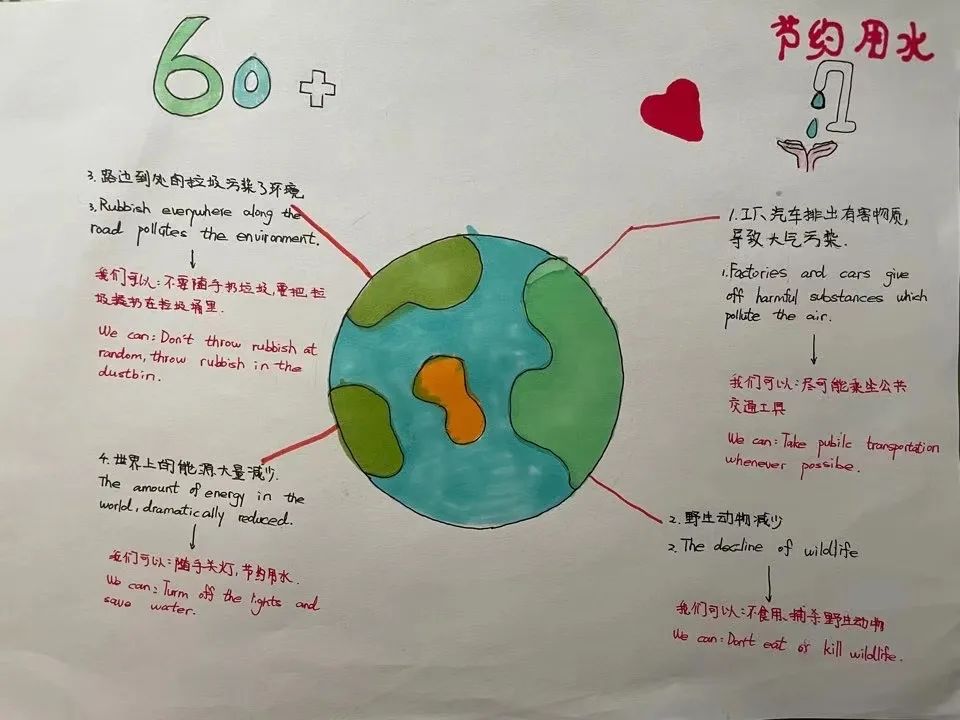 60+
节约用水
1.工厂、汽车排出有害物质,
导致大气污染.
1.Factories and cars give
off harmful substances which
pollute the air.
我们可以:尽可能乘坐公共
交通工具
We can: Take pubilc transportation
whenever possibe.
2.野生动物减少
2.The decline of wildlife
我们可以:不食用、捕杀野生动物
We can: Don't eat or kill wildlife.
3.路边到处的垃圾污染了环境
3.Rubbish everywhere along the
road pollutes the environment.
我们可以:不要随手扔垃圾,要把垃
圾揍扔在垃圾桶里.
We can: Don't throw rubbish at
random, throw rubbish in the
dustbin.
4.世界上的能源大量减少.
The amount of energy in the
world, dramatically reduced.
我们可以:随手关灯,节约用水.
We can: Turm off the lights and
save water.